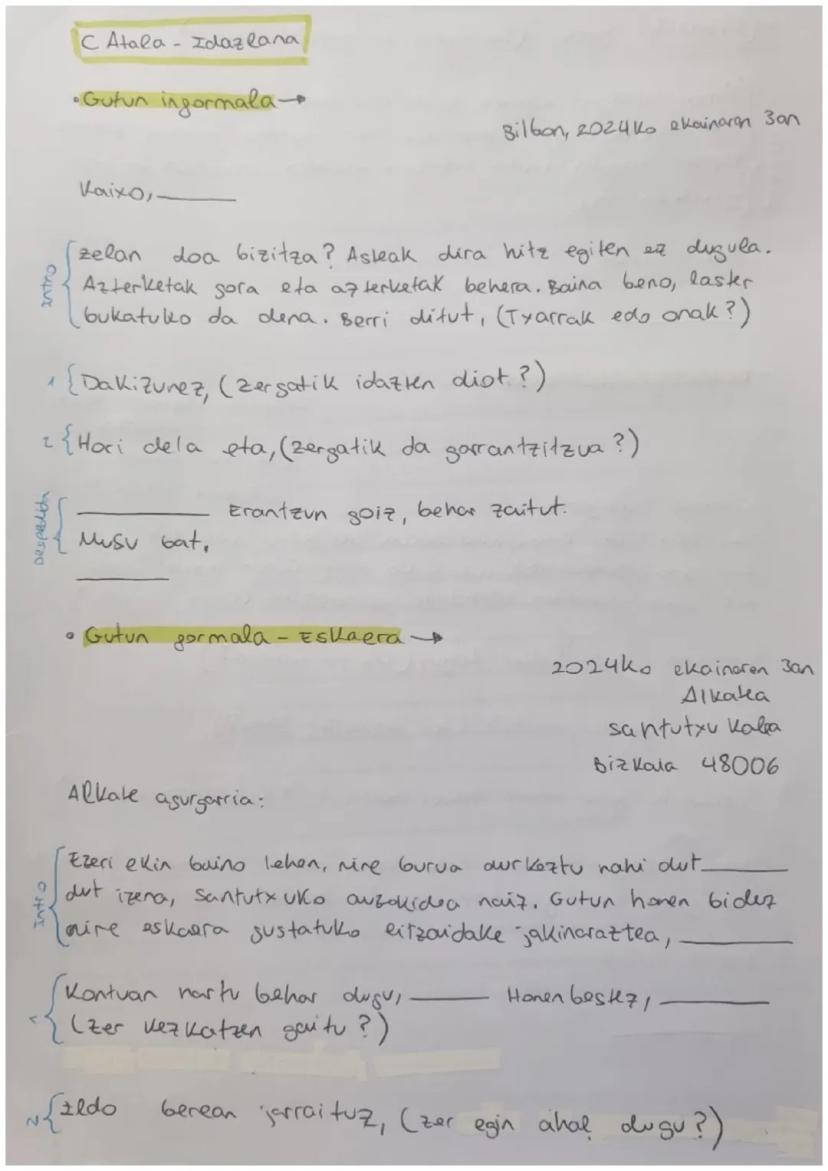 C Atala - Idazlana
• Gutun ingormala →
Bilbon, 2024ko ekainaren 3an
Kaixo, ________
Intro
zelan doa bizitza? Askak dira hitz egiten ez dugula.
Azterketak gora eta azterketak behera. Baina beno, laster
bukatuko da dena. Berri ditut, (Txarrak edo onak?)
1 { Dakizunez, (zergatik idazten diot?)
2 { Hori dela eta, (zergatik da garrantzitzua?)
Despedida
________ Erantzun goiz, behar zaitut.
Musu bat,
________
• Gutun gormala - Eskaera →
2024ko ekainaren 3an
Alkatea
Santutxu Kalea
Bizkaia 48006
Alkate agurgarria:
Intro
Ezeri ekin baino lehen, nire burua aurkeztu nahi dut ________
dut izena, Santutxuko auzokidea naiz. Gutun honen bidez
nire eskaera gustatuko litzaidake jakinaraztea, ________
1 { Kontuan hartu behar dugu, ________ Honen bestez, ________
(zer kezkatzen gaitu?)
2 { Ildo berean jarraituz, (zer egin ahal dugu?)